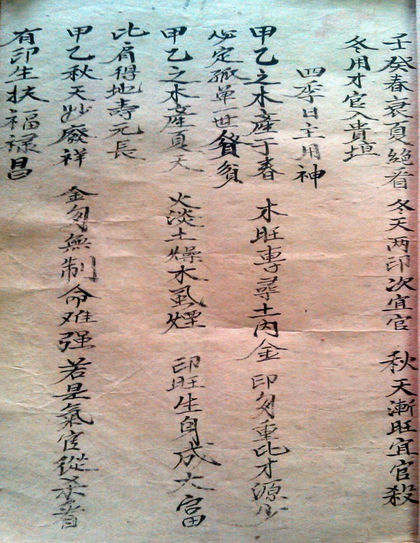 壬癸春衰夏絕看 冬天两印次宜官 秋天漸旺宜官殺
冬用才官入貴垣
四季日主用神
甲乙之木產于春 木旺專尋土內金 印多重比才源少
必定孤單世貧
甲乙之木產夏天 火淡土燥木虱煙 印旺生身成大富
比肩得地壽元長
甲乙秋天妙廢祥 金多無制命难强 若是氣官從杀看
有印生扶福禄昌